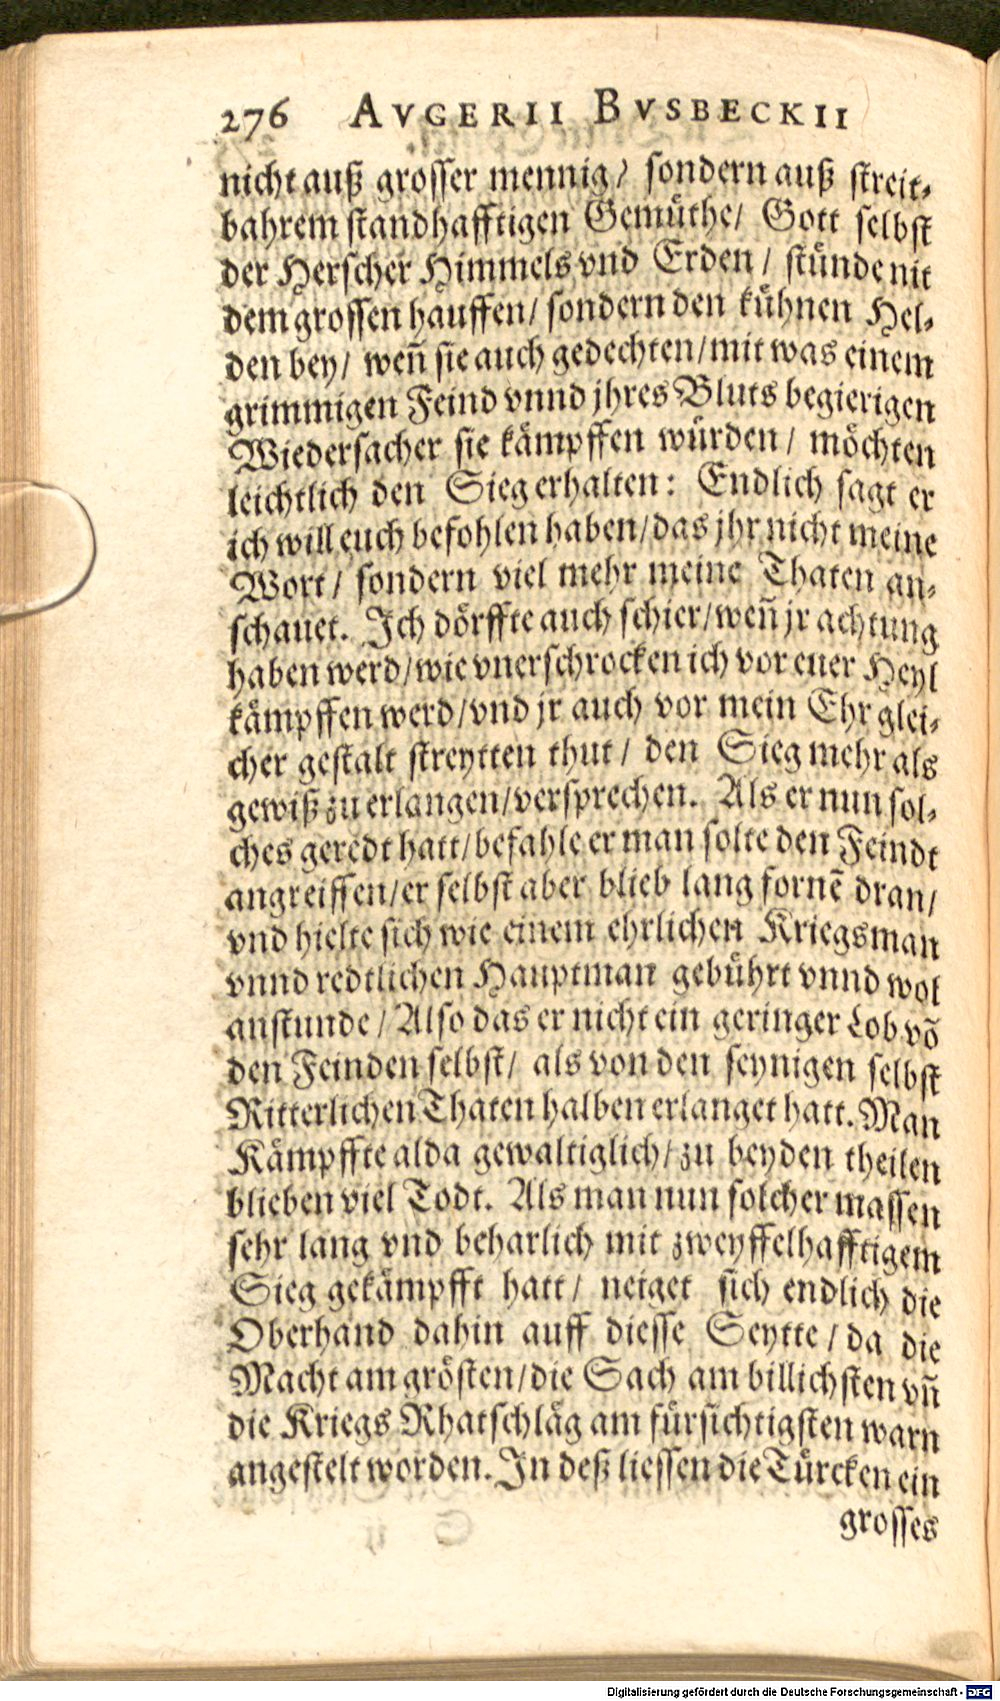 276 AVGERII BVSBECKII
nicht auß grosser mennig/ sondern auß streit-
bahrem standhafftigen Gemüthe/ Gott selbst
der Herscher Himmels vnd Erden / stünde nit
dem grossen hauffen/ sondern den kühnen Hel-
den bey/ weñ sie auch gedechten/mit was einem
grimmigen Feind vnnd jhres Bluts begierigen
Wiedersacher sie kämpffen würden/ möchten
leichtlich den Sieg erhalten: Endlich sagt er
ich will euch befohlen haben/das jhr nicht meine
Wort/ sondern viel mehr meine Thaten an-
schauet. Ich dörffte auch schier/weñ jr achtung
haben werd/wie vnerschrocken ich vor euer Heyl
kämpffen werd/vnd jr auch vor mein Ehr glei-
cher gestalt streytten thut/ den Sieg mehr als
gewiß zu erlangen/versprechen. Als er nun sol-
ches geredt hatt/befahle er man solte den Feindt
angreiffen/er selbst aber blieb lang fornē dran/
vnd hielte sich wie einem ehrlichen Kriegsman
vnnd redtlichen Hauptman gebührt vnnd wol
anstunde/Also das er nicht ein geringer Lob võ
den Feinden selbst/ als von den seynigen selbst
Ritterlichen Thaten halben erlanget hatt. Man
Kämpffte alda gewaltiglich/zu beyden theilen
blieben viel Todt. Als man nun solcher massen
sehr lang vnd beharlich mit zweyffelhafftigem
Sieg gekämpfft hatt/ neiget sich endlich die
Oberhand dahin auff diesse Seytte/da die
Macht am grösten/die Sach am billichsten vñ
die Kriegs Rhatschläg am fürsichtigsten warn
angestelt worden. In deß liessen die Türcken ein
grosses
Digitalisierung gefördert durch die Deutsche Forschungsgemeinschaft - DFG